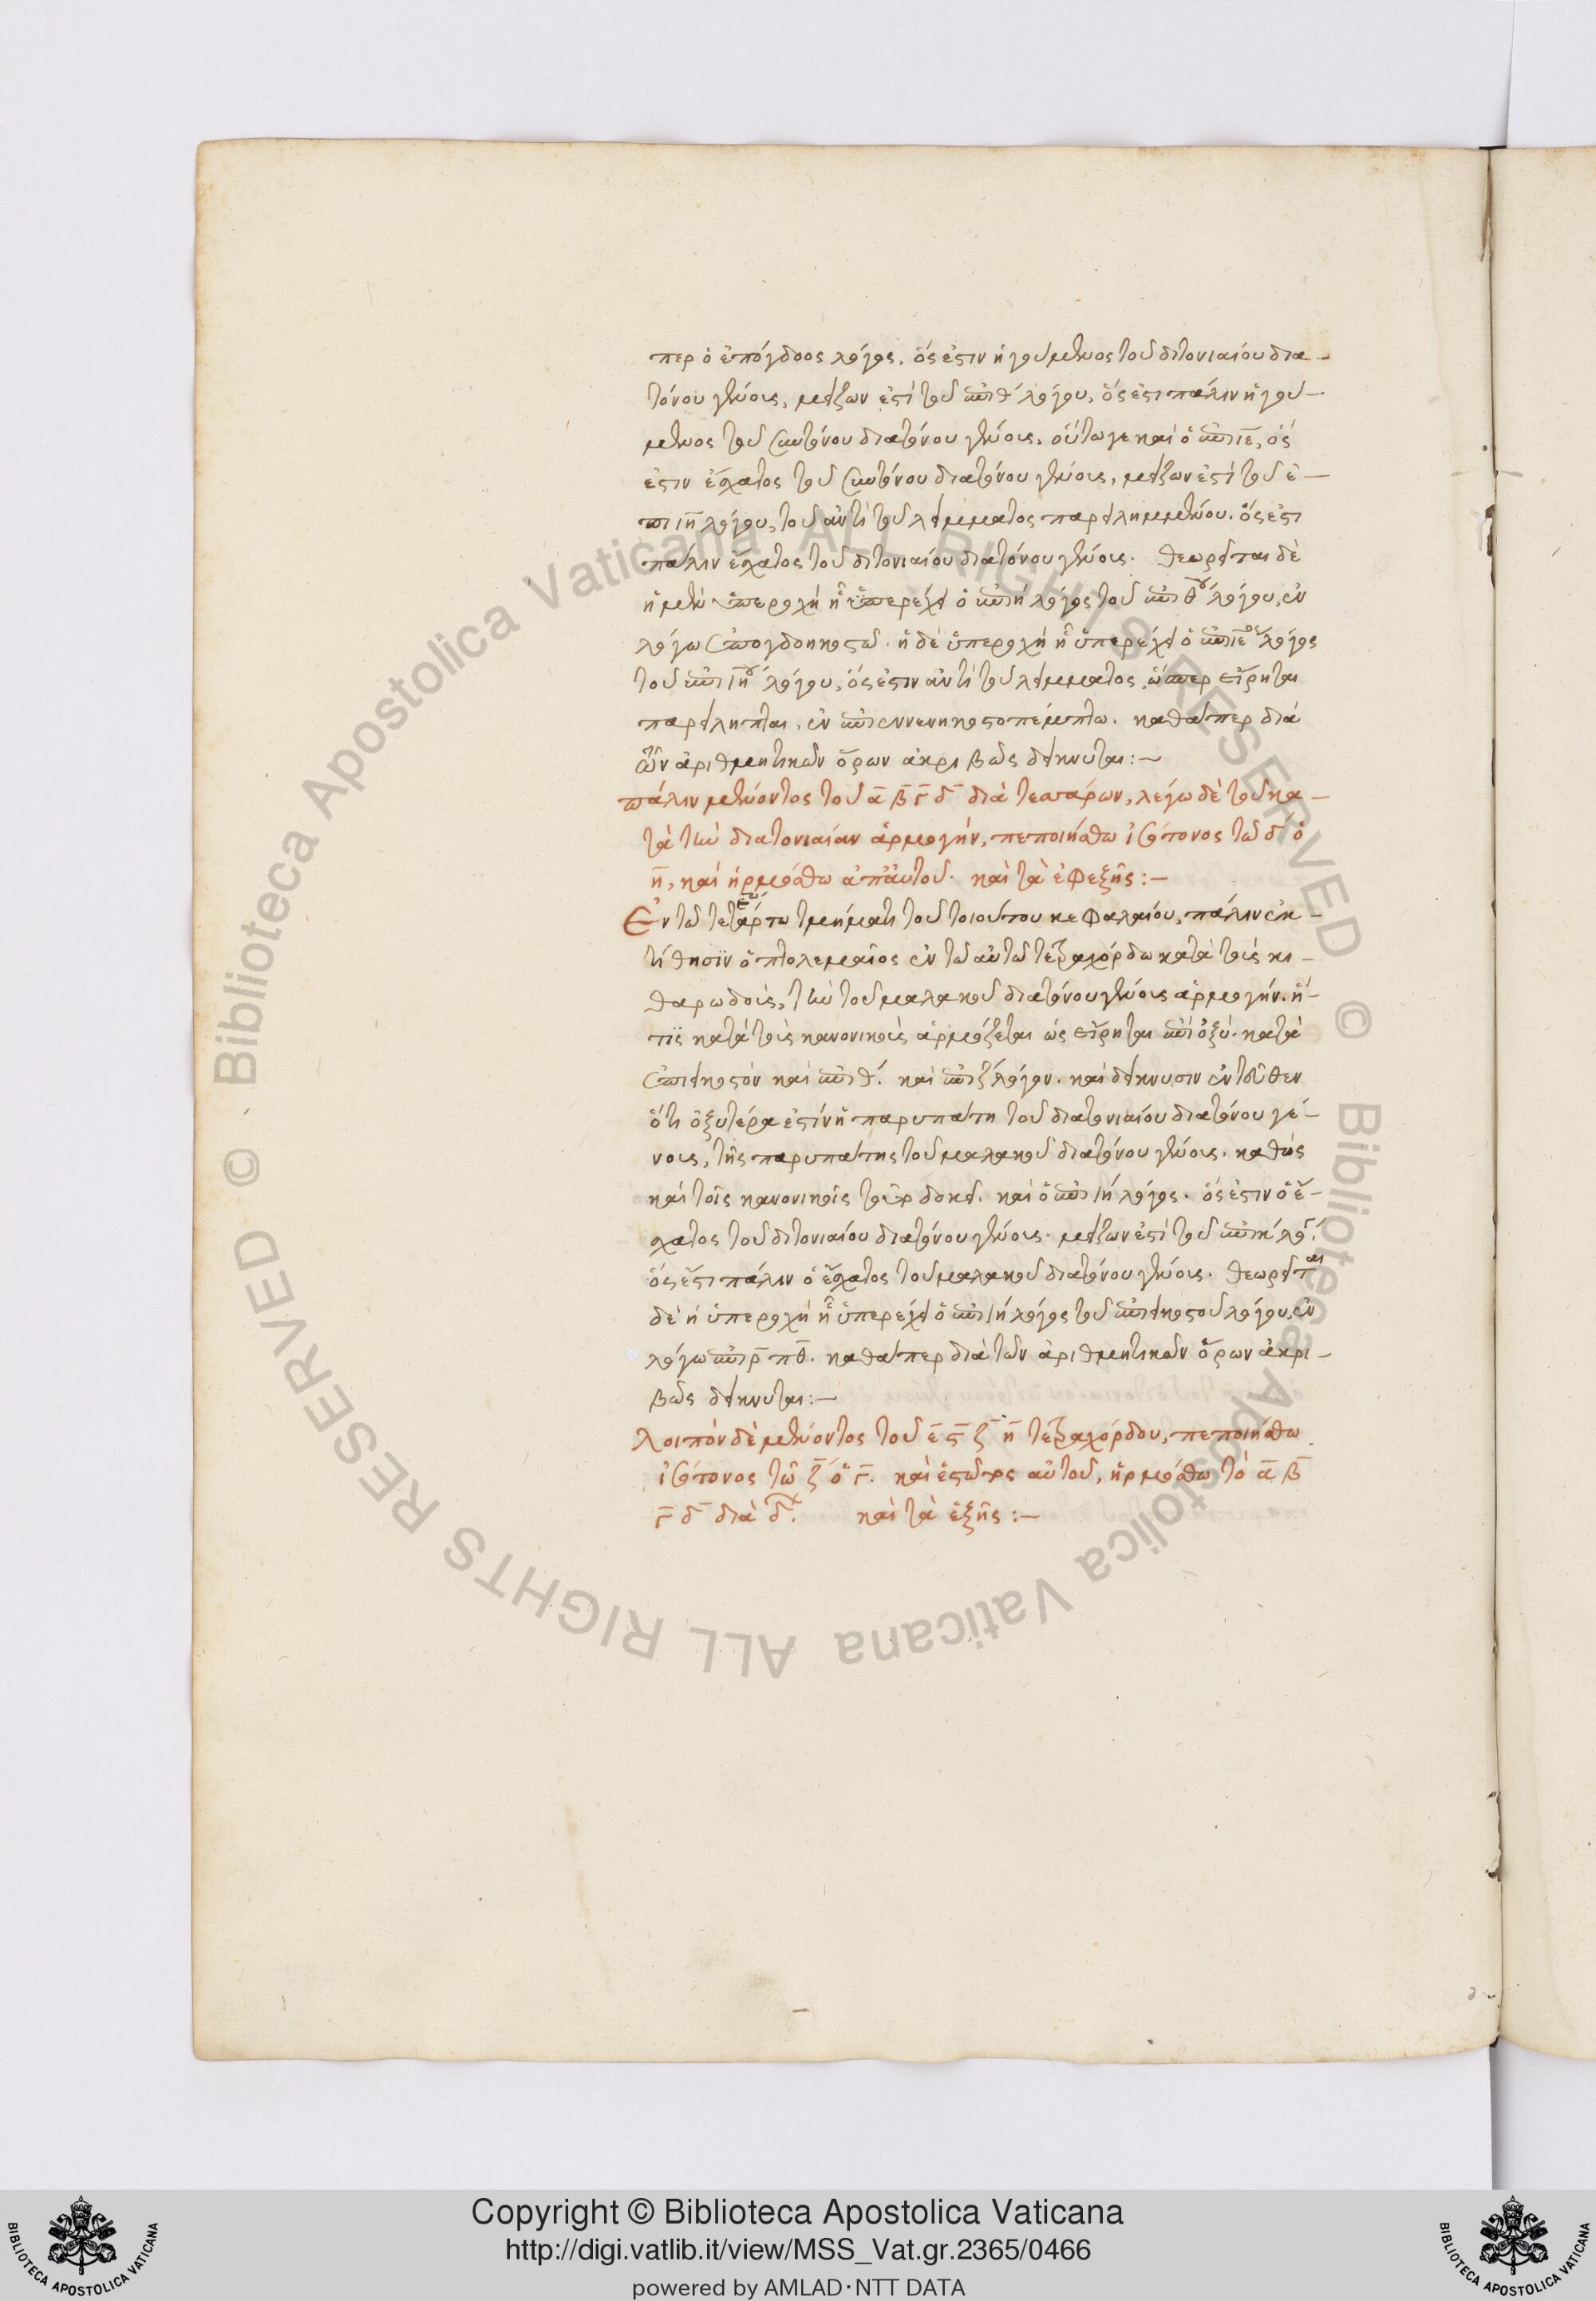 περ ὁ ἐπόγδοος λόγος. ὅς ἐστιν ἡγούμενος τοῦ διτονιαίου δια-
τόνου γένους, μείζων ἐστὶ τοῦ ἐπὶ θ´ λόγου, ὅς ἐστι πάλιν ἡγού-
μενος τοῦ συντόνου διατόνου γένους. οὕτω γε καὶ ὁ ἐπὶ ιε, ὅς
ἐστιν ἔσχατος τοῦ συντόνου διατόνου γένους, μείζων ἐστὶ τοῦ ἐ-
πι ιη λόγου, τοῦ ἀντὶ τοῦ λείμματος παρειλημμένου. ὅς ἐστι
πάλιν ἔσχατος τοῦ διτονιαίου διατόνου γένους. θεωρεῖται δὲ
ἡ μὲν ὑπεροχὴ ᾗ ὑπερέχει ὁ ἐπὶ η λόγος τοῦ ἐπὶ θου λόγου, ἐν
λόγω ἐπογδοηκοστῶ. ἡ δὲ ὑπεροχὴ ᾗ ὑπερέχει ὁ ἐπὶ ιεος λόγος
τοῦ ἐπὶ ιηου λόγου, ὅς ἐστιν ἀντὶ τοῦ λείμματος ὥσπερ εἴρηται
παρείληπται, ἐν ἐπὶ εννενηκοστοπέμπτω. καθάπερ διὰ
τῶν ἀριθμητικῶν ὅρων ἀκριβῶς δείκνυται:-
πάλιν μένοντος τοῦ α β γ δ διὰ τεσσάρων, λέγω δὲ τοῦ κα-
τὰ τὴν διατονιαίαν ἁρμογήν, πεποιήσθω ἰσότονος τῶ δ ὁ
η, καὶ ἡρμόσθω ἀπ᾽ αὐτοῦ. καὶ τὰ ἐφεξῆς:-
Ἐν τῶ τετάρτω τμήματι τοῦ τοιούτου κεφαλαίου, πάλιν ἐκ-
τίθησιν ὁ πτολεμαῖος ἐν τῶ αὐτῶ τετραχόρδω κατὰ τοὺς κι-
θαρωδοὺς, τὴν τοῦ μαλακοῦ διατόνου γένους ἁρμογήν. ἥ-
τις κατὰ τοὺς κανονικοὺς ἁρμόζεται ὡς εἴρηται ἐπὶ ὀξύ. κατὰ
ἐπιεικοστὸν καὶ ἐπὶ θ´. καὶ ἐπὶ ζ´ λόγον. καὶ δείκνυσιν ἐντεῦθεν
ὅτι ὀξυτέρα ἐστὶν ἡ παρυπάτη τοῦ διατονιαίου διατόνου γέ-
νους, τῆς παρυπάτης τοῦ μαλακοῦ διατόνου γένους. καθὼς
καὶ τοῖς κανονικοῖς τοῦτο δοκεῖ. καὶ ὁ ἐπὶ ιη λόγος. ὅς ἐστιν ὁ ἔ-
σχατος τοῦ διτονιαίου διατόνου γένους. μείζων ἐστὶ τοῦ ἐπὶ κ´ λόγ.
ὅς ἐστι πάλιν ὁ ἔσχατος τοῦ μαλακοῦ διατόνου γένους. θεωρεῖται
δὲ ἡ ὑπεροχὴ ᾗ ὑπερέχει ὁ ἐπὶ ιη λόγος τοῦ ἐπιεικοστοῦ λόγου, ἐν
λόγω ἐπὶ ρ πθ. καθάπερ διὰ τῶν ἀριθμητικῶν ὅρων ἀκρι-
βῶς δείκνυται:-
Λοιπὸν δὲ μένοντος τοῦ ε ϛ ζ η τετραχόρδου, πεποιήσθω
ἰσότονος τῶ ζ ὁ γ. καὶ ἑπομένως αὐτοῦ, ἡρμόσθω τὸ α β
γ δ διὰ δ. καὶ τὰ ἑξῆς:-
Copyright © Biblioteca Apostolica Vaticana
http://digi.vatlib.it/view/MSS_Vat.gr.2365/0466
powered by AMLAD·NTT DATA